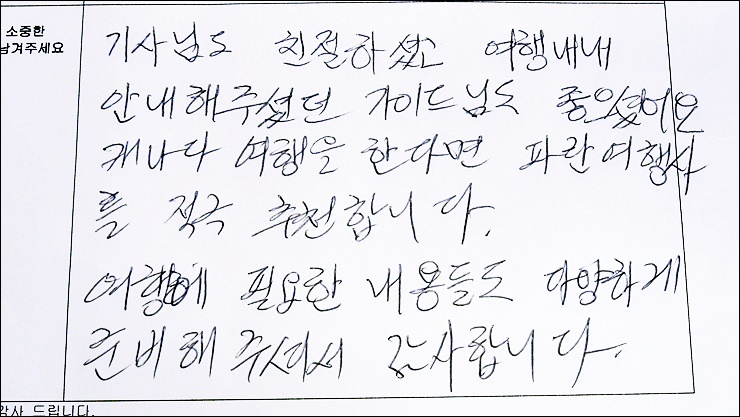 소중한
남겨주세요
기사님도 친절하셨고 여행내내
안내해주셨던 가이드님도 좋으셨어요
캐나다 여행을 한다면 파란여행사
를 적극 추천합니다.
여행에 필요한 내용들도 다양하게
준비해 주셔서 감사합니다.
감사 드립니다.